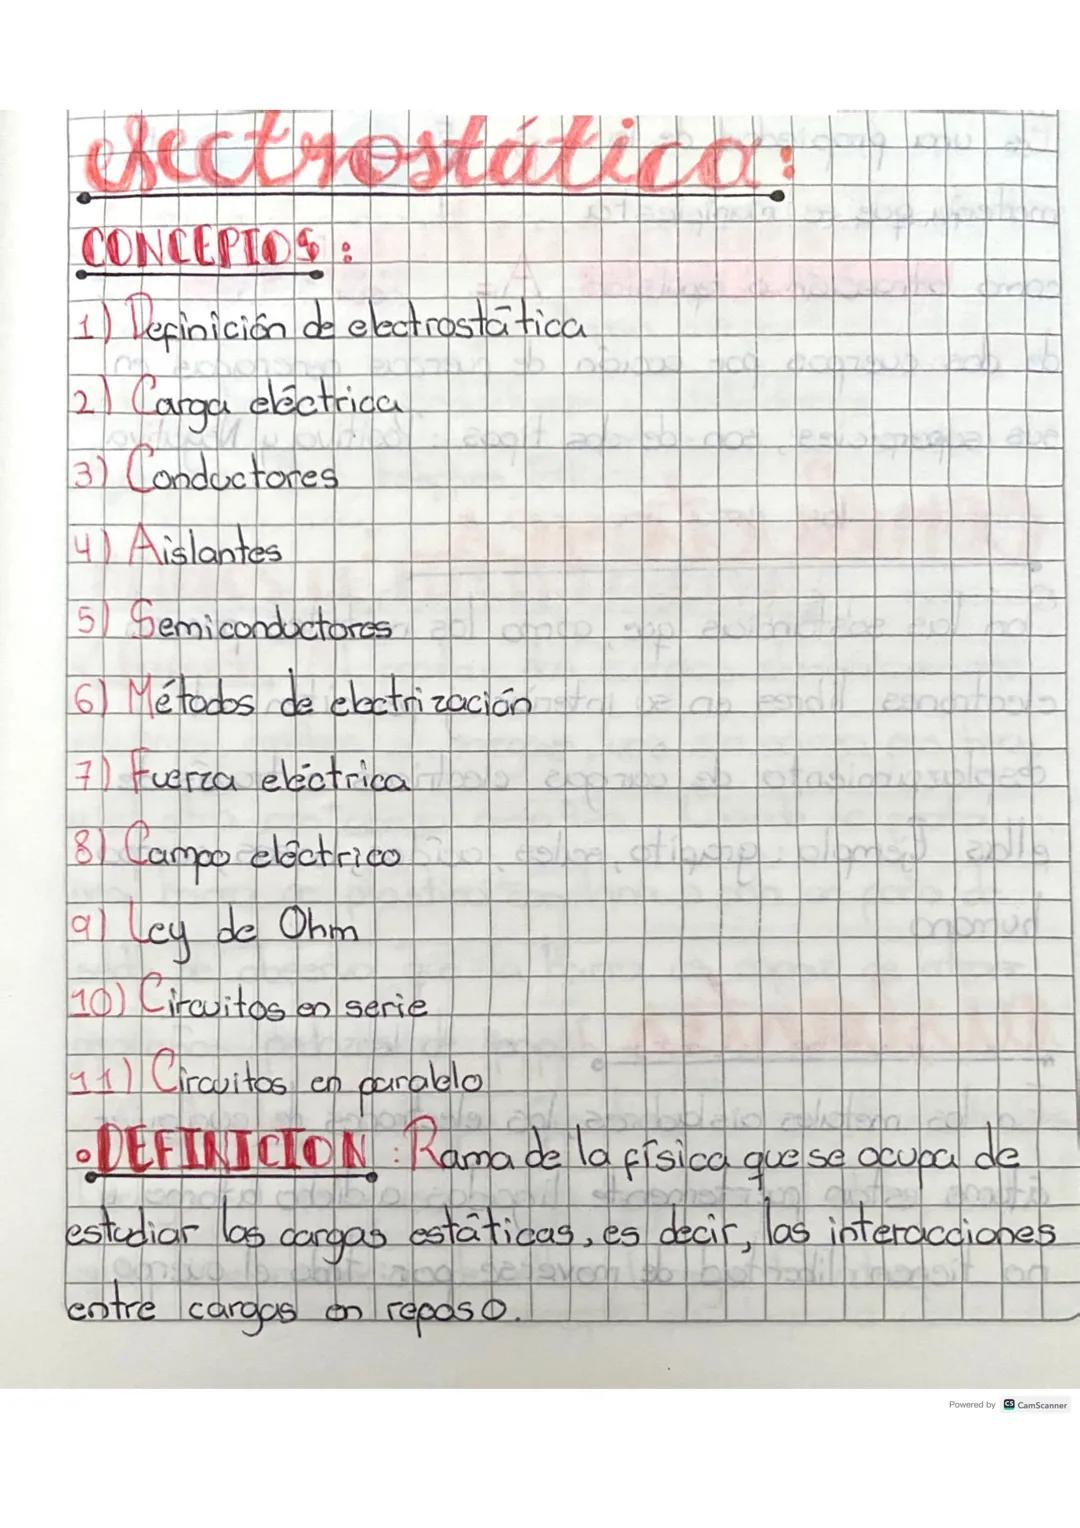 electrostática:
CONCEPTOS:
1) Definición de electrostática
2) Carga eléctrica
3) Conductores
4) Aislantes
5) Semiconductores
6) Métodos de electrización
7) Fuerza eléctrica
8) Campo eléctrico
9) Ley de Ohm
10) Circuitos en serie
11) Circuitos en paralelo
•DEFINICION: Rama de la física que se ocupa de
estudiar las cargas estáticas, es decir, las interacciones
entre cargas en reposo.
Powered by CS CamScanner